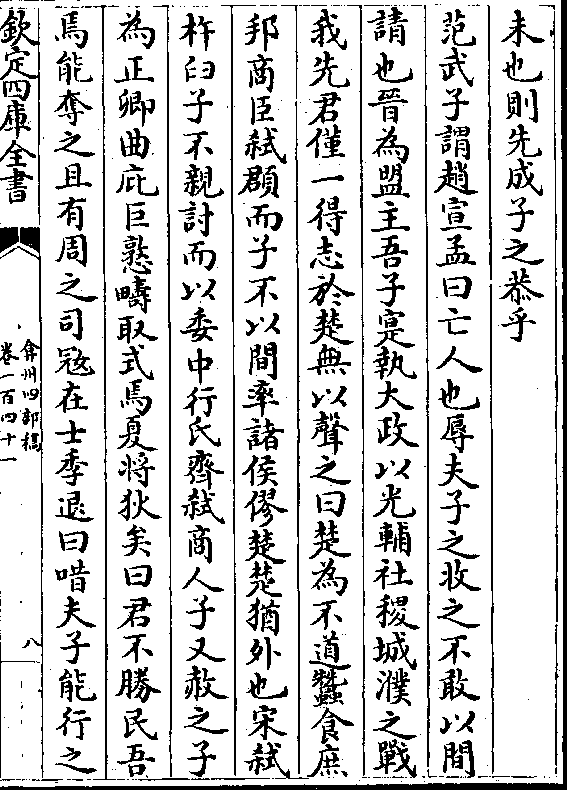 未也則先成子之恭乎
范武子謂趙宣孟曰亡人也辱夫子之收之不敢以間
請也晉為盟主吾子寔執大政以光輔社稷城濮之戰
我先君僅一得志於楚無以聲之曰楚為不道蠶食庶
邦商臣弑頵而子不以間率諸侯僇楚楚猶外也宋弑
杵臼子不親討而以委中行氏齊弑商人子又赦之子
為正卿曲庇巨憝疇取式焉夏將狄矣曰君不勝民吾
焉能奪之且有周之司冦在士季退曰唶夫子能行之
欽定四庫全書
弇州四部稿
卷一百四十一
八